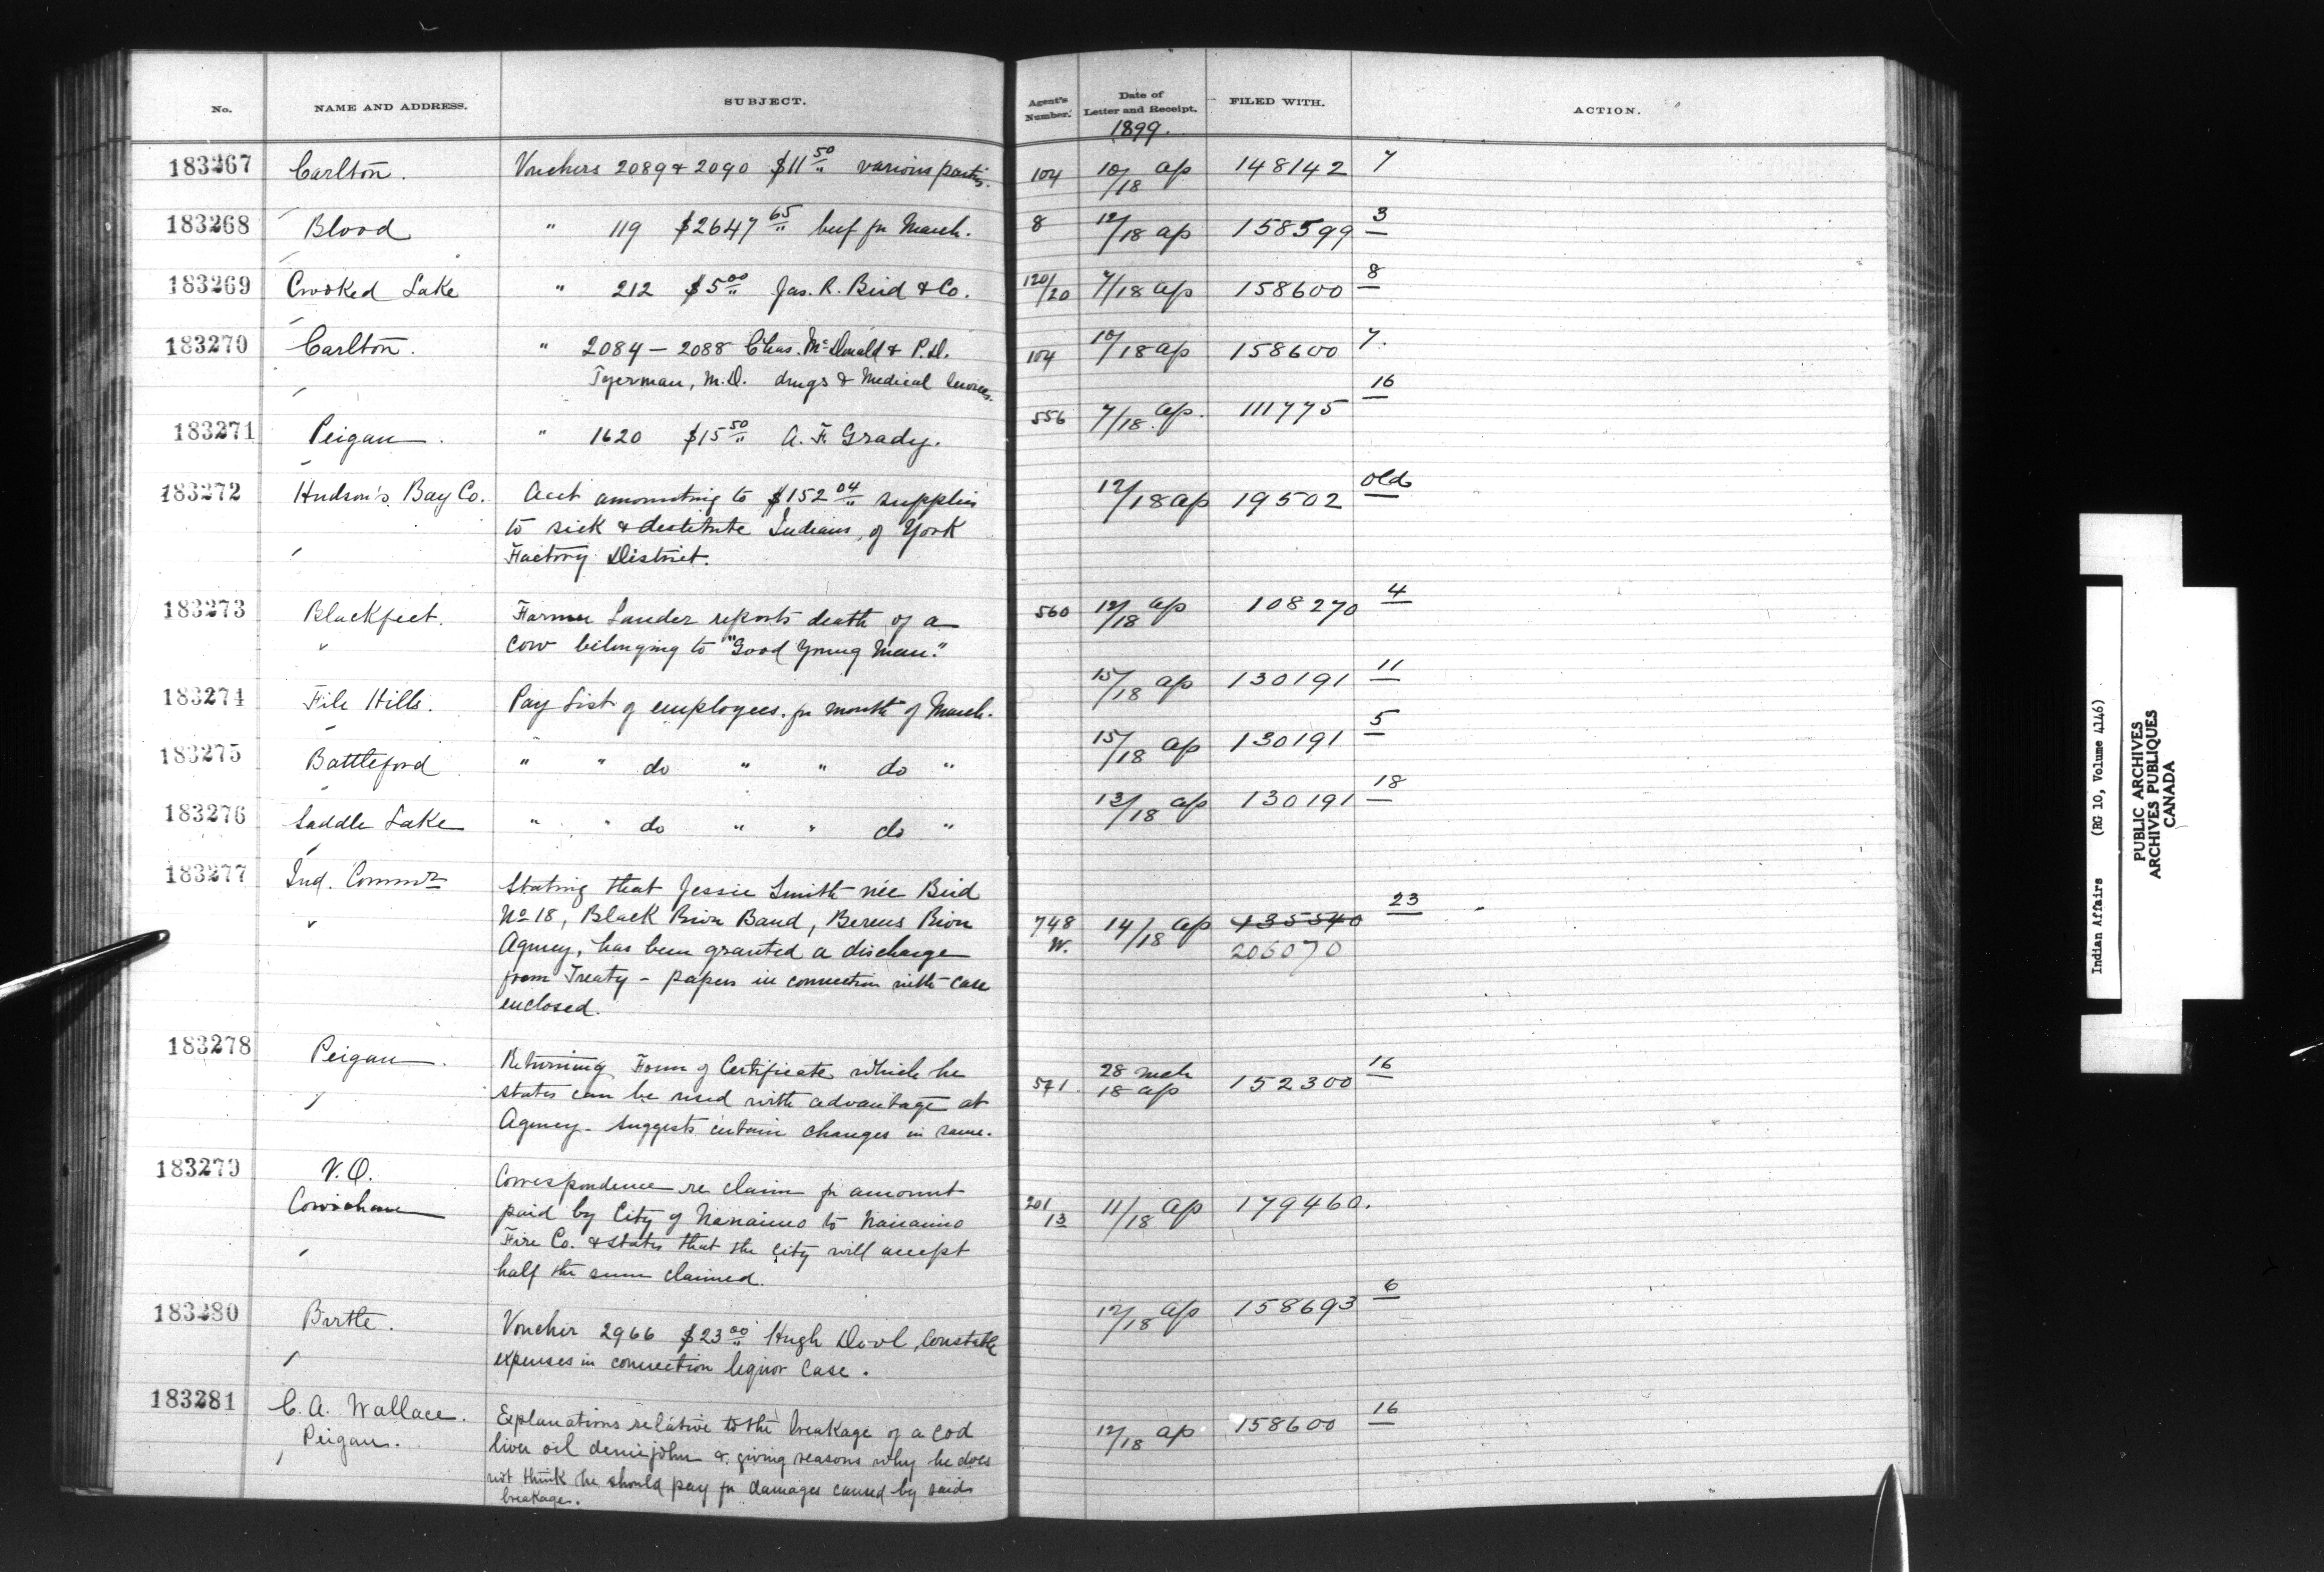 No. NAME AND ADDRESS. SUBJECT. Agent's Number. Date of Letter and Receipt. FILED WITH. ACTION.
1899.
183267 Carlton. Vouchers 2089 & 2090 $11 50 various parties. 104 10/18 ap 148142 7
183268 Blood " 119 $2647 65 beef for March. 8 12/18 ap 158599 3
183269 Crooked Lake " 212 $5 00 Jas. R. Bird & Co. 120/20 7/18 ap 158600 8
183270 Carlton. " 2084 – 2088 Chas. McDonald & P.D. 104 10/18 ap 158600 7.
Tyerman, M.D. drugs & Medical Services.
183271 Peigan. " 1620 $15 50 A. F. Grady. 556 7/18 ap. 111775 16
183272 Hudson's Bay Co. Acct amounting to $152 04 supplies 12/18 ap 19502 old
to sick & destitute Indians, of York
Factory District.
183273 Blackfeet. Farmer Lauder reports death of a 560 12/18 ap 108270 4
cow belonging to "Good Young Man."
183274 File Hills. Pay List of employees for month of March. 15/18 ap 130191 11
183275 Battleford " " do " " do " 15/18 ap 130191 5
183276 Saddle Lake " " do " " do " 13/18 ap 130191 18
183277 Ind. Commr Stating that Jessie Smith née Bird
No 18, Black River Band, Berens River 748 W. 14/18 ap 135540 23
Agency, has been granted a discharge 206070
from Treaty – papers in connection with case
enclosed.
183278 Peigan. Returning Form of Certificate which he 571. 28 mch 18 ap 152300 16
states can be used with advantage at
Agency – suggests certain changes in same.
183279 V.O. Correspondence re claim for amount
Cowichan paid by City of Nanaimo to Nanaimo 201 13 11/18 ap 179460.
Fire Co. & states that the city will accept
half the sum claimed.
183280 Birtle. Voucher 2966 $23 00 Hugh Constable 12/18 ap 158693 6
expenses in connection liquor case.
183281 C. A. Wallace. Explanations relative to the breakage of a cod 12/18 ap 158600 16
Peigan. liver oil demijohn & giving reasons why he does
not think he should pay for damages caused by said
breakage.
Indian Affairs (RG 10, Volume 4146)
PUBLIC ARCHIVES
ARCHIVES PUBLIQUES
CANADA